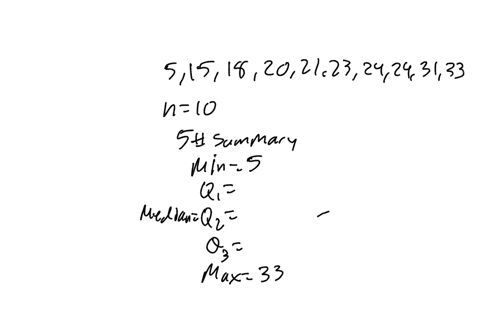 5, 15, 18, 20, 21, 23, 24, 24, 31, 33
n=10
5# Summary
Min=5
Q1=
Median=Q2=
Q3=
Max=33